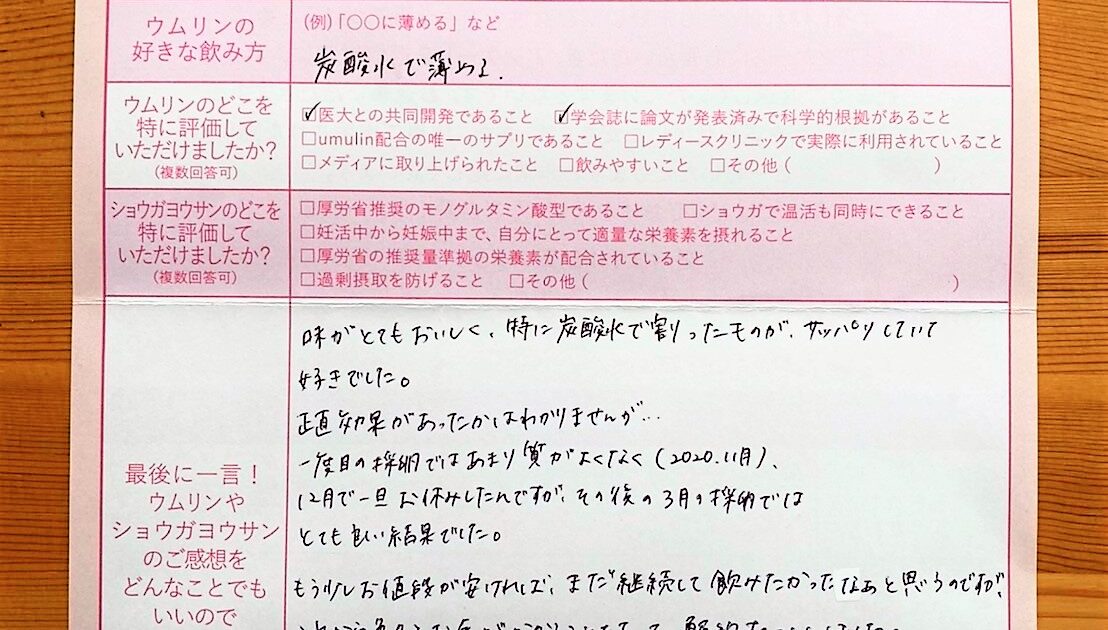 ウムリンの
好きな飲み方
(例)「〇〇に薄める」など
炭酸水で薄める.
ウムリンのどこを
特に評価して
いただけましたか?
(複数回答可)
☑医大との共同開発であること ☑学会誌に論文が発表済みで科学的根拠があること
□umulin配合の唯一のサプリであること □レディースクリニックで実際に利用されていること
□メディアに取り上げられたこと □飲みやすいこと □その他( )
ショウガヨウサンのどこを
特に評価して
いただけましたか?
(複数回答可)
□厚労省推奨のモノグルタミン酸型であること □ショウガで温活も同時にできること
□妊活中から妊娠中まで、自分にとって適量な栄養素を摂れること
□厚労省の推奨量準拠の栄養素が配合されていること
□過剰摂取を防げること □その他( )
最後に一言!
ウムリンや
ショウガヨウサン
のご感想を
どんなことでも
いいので
味がとてもおいしく、特に炭酸水で割ったものが、サッパリしていて
好きでした。
正直効果があったかはわかりませんが…
一度目の採卵ではあまり質がよくなく(2020.11月)、
12月で一旦お休みしたんですが、その後の3月の採卵では
とても良い結果でした。
もう少しお値段が安ければ、まだ継続して飲みたかったなぁと思うのですが、